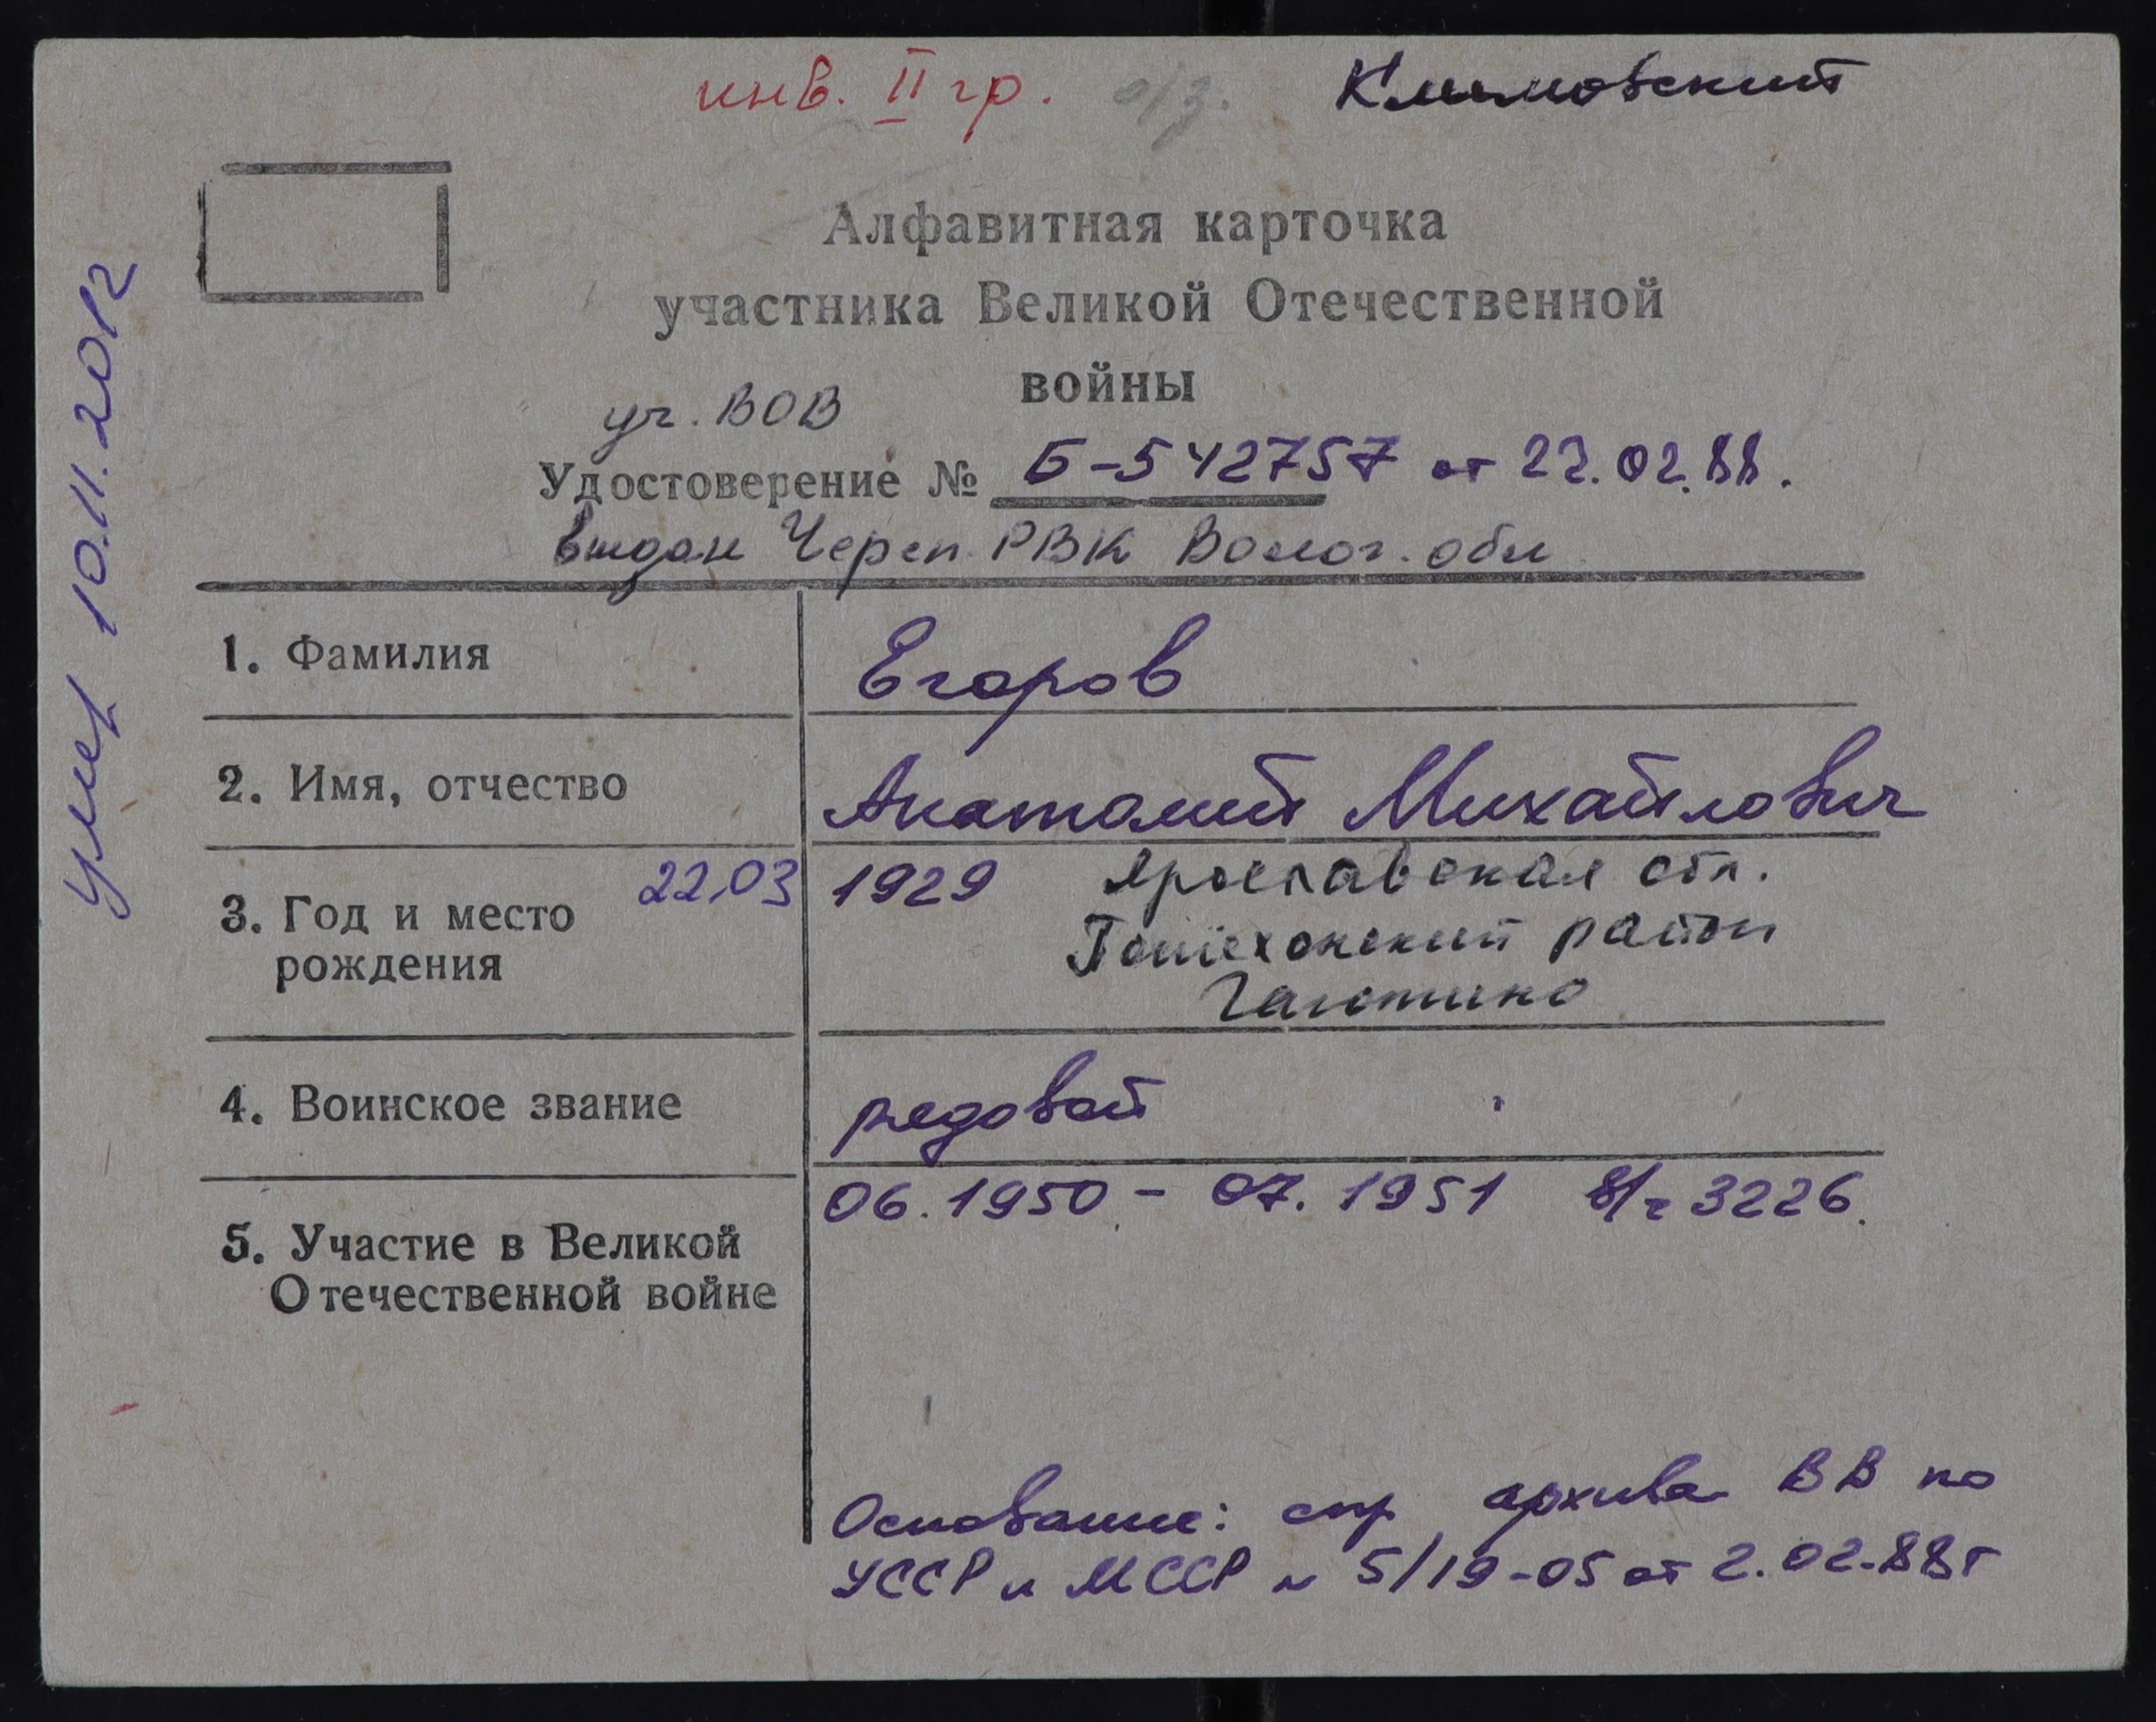 инв. II гр. о/з. Климовский
Алфавитная карточка
участника Великой Отечественной
войны
уч. ВОВ
Удостоверение № Б-542757 от 22.02.88.
выдан Череп. РВК Волог. обл
1. Фамилия Егоров
2. Имя, отчество Анатолий Михайлович
3. Год и место рождения 22.03 1929 Ярославская обл.
Пошехонский район
Гаютино
4. Воинское звание рядовой
5. Участие в Великой Отечественной войне 06.1950 - 07.1951 в/ч 3226.
Основание: спр архива ВВ по
УССР и МССР № 5/19-05 от 2.02.88г
умер 10.11.2012